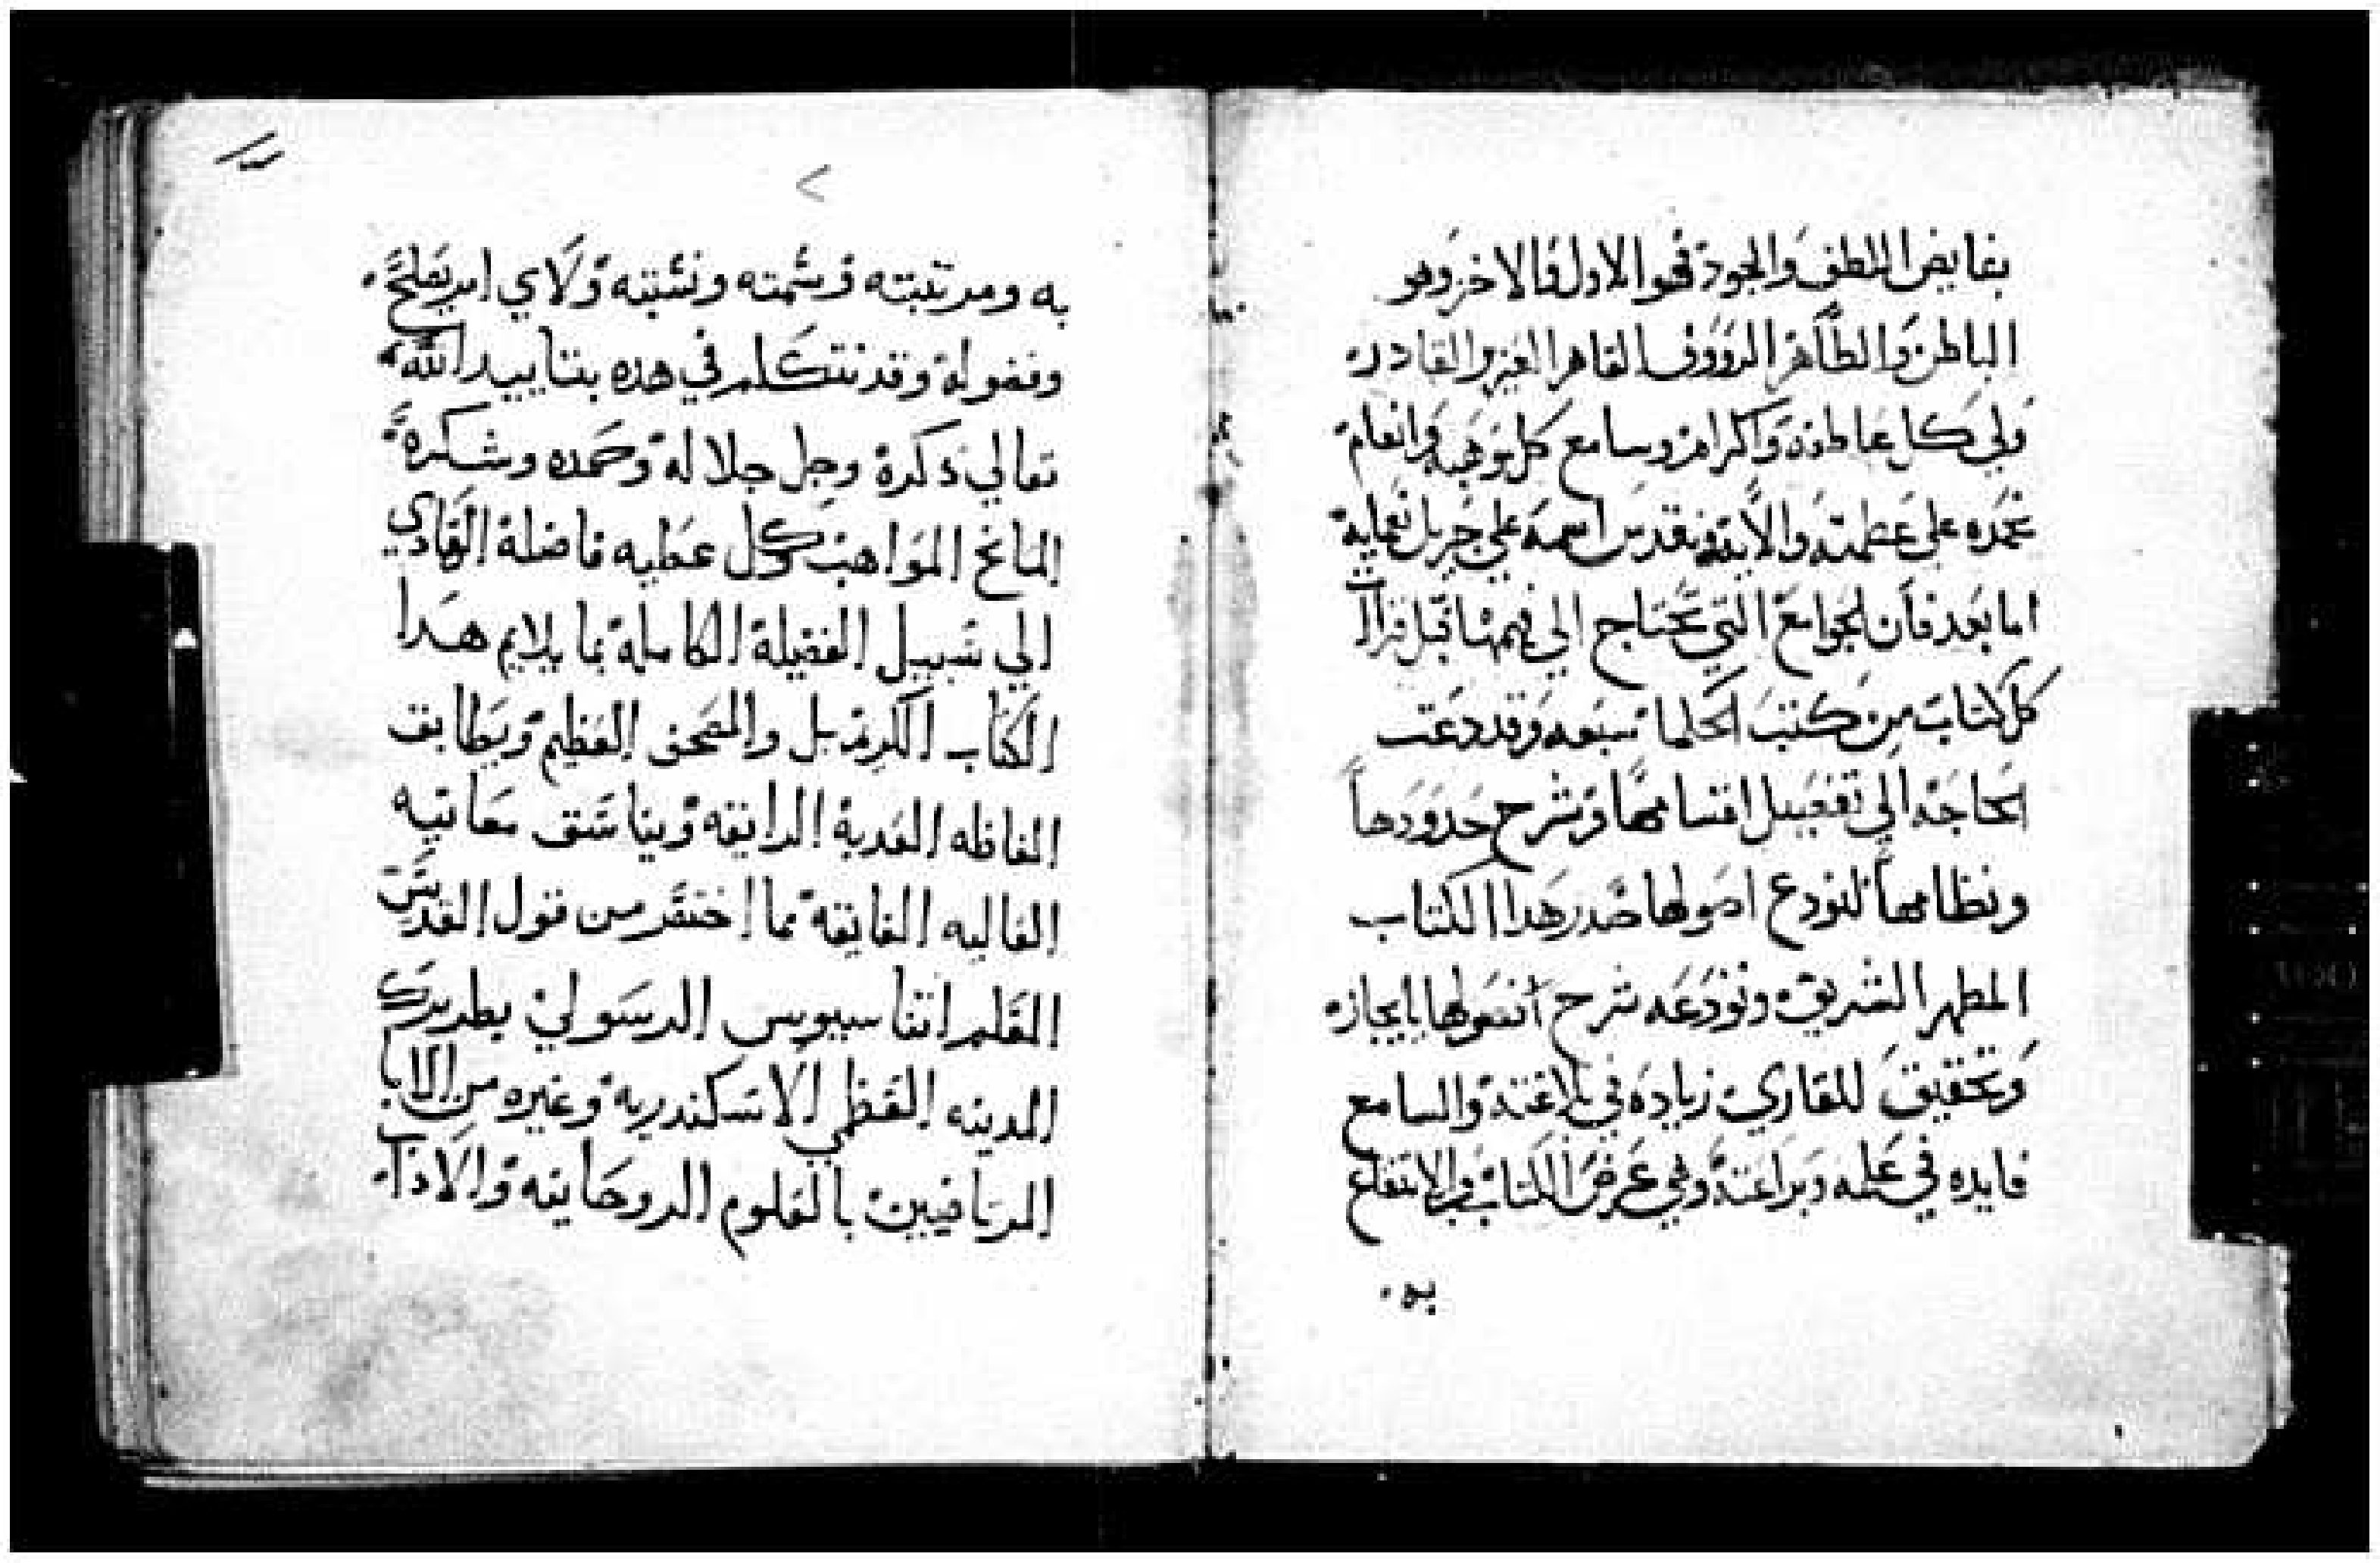 بفايض اللطف والجود فهو الاول والاخر وهو
الباطن والظاهر الرووف القاهر العزيز القادر
ولي كل عاطفة واكرام وسامع كل موهبه وانعام
نحمده علي عظمته والايه ونقدس اسمه علي جزيل نعمايه
اما بعد فان الجوامع التي تحتاج الي فهمها قبل قراة
كل كتاب من كتب الحكما سبعه وقد دعت
الحاجة الي تفصيل اقسامها وشرح حدودها
ونظامها لنودع اصولها صدر هدا الكتاب
المطهر الشريف ونودعه شرح فصولها بايجاز
وتحقيق للقاري زياده في بلاغته والسامع
فايده في علمه وبراعته وهي غرض الكتاب والانتفاع
به
به ومرتبته وسمته ونسبته ولاي امر يصلح
وفصوله وقد نتكلم في هده بتاييد الله
تعالي دكره وجل جلاله وحمده وشكره
المانح المواهب كل عطيه فاضلة الهادي
الي سبيل الفضيلة الكاملة بما يلايم هدا
الكتاب الكريم الجليل والمصحف العظيم ويطابق
الفاظه العدبة الرايقه ويناسق معانيه
العاليه الفايقة مما اختصر من قول القديس
المعلم اتناسيوس الرسولي بطريرك
المدينه العظمي الاسكندريه وغيره من الابا
المرتاضيين بالعلوم الروحانيه والاداب